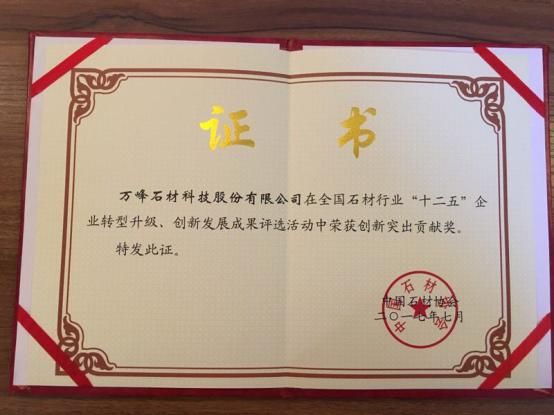 证 书
万峰石材科技股份有限公司在全国石材行业“十二五”企
业转型升级、创新发展成果评选活动中荣获创新突出贡献奖。
特发此证。
中国石材协会
二〇一七年七月
中国石材协会